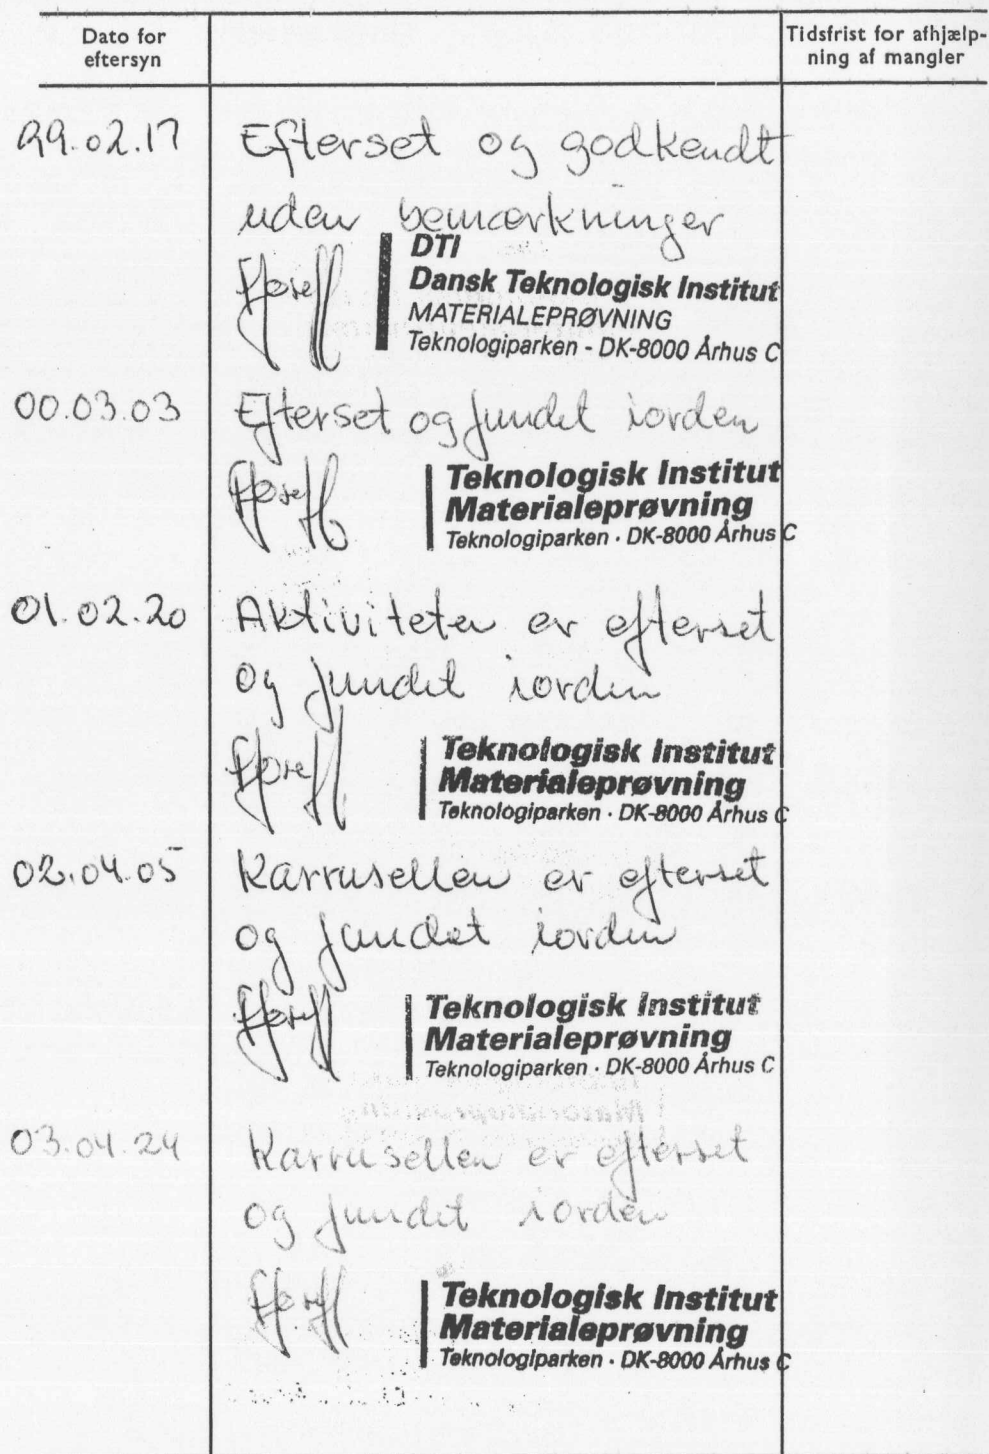 Dato for
eftersyn
Tidsfrist for afhjælp-
ning af mangler
99.02.17
Efterset og godkendt
uden bemærkninger
DTI
Dansk Teknologisk Institut
MATERIALEPRØVNING
Teknologiparken - DK-8000 Århus C
00.03.03
Efterset og fundet iorden
Teknologisk Institut
Materialeprøvning
Teknologiparken · DK-8000 Århus C
01.02.20
Aktiviteten er efterset
og fundet iorden
Teknologisk Institut
Materialeprøvning
Teknologiparken · DK-8000 Århus C
02.04.05
Karrusellen er efterset
og fundet iorden
Teknologisk Institut
Materialeprøvning
Teknologiparken · DK-8000 Århus C
03.04.24
Karrusellen er efterset
og fundet iorden
Teknologisk Institut
Materialeprøvning
Teknologiparken · DK-8000 Århus C